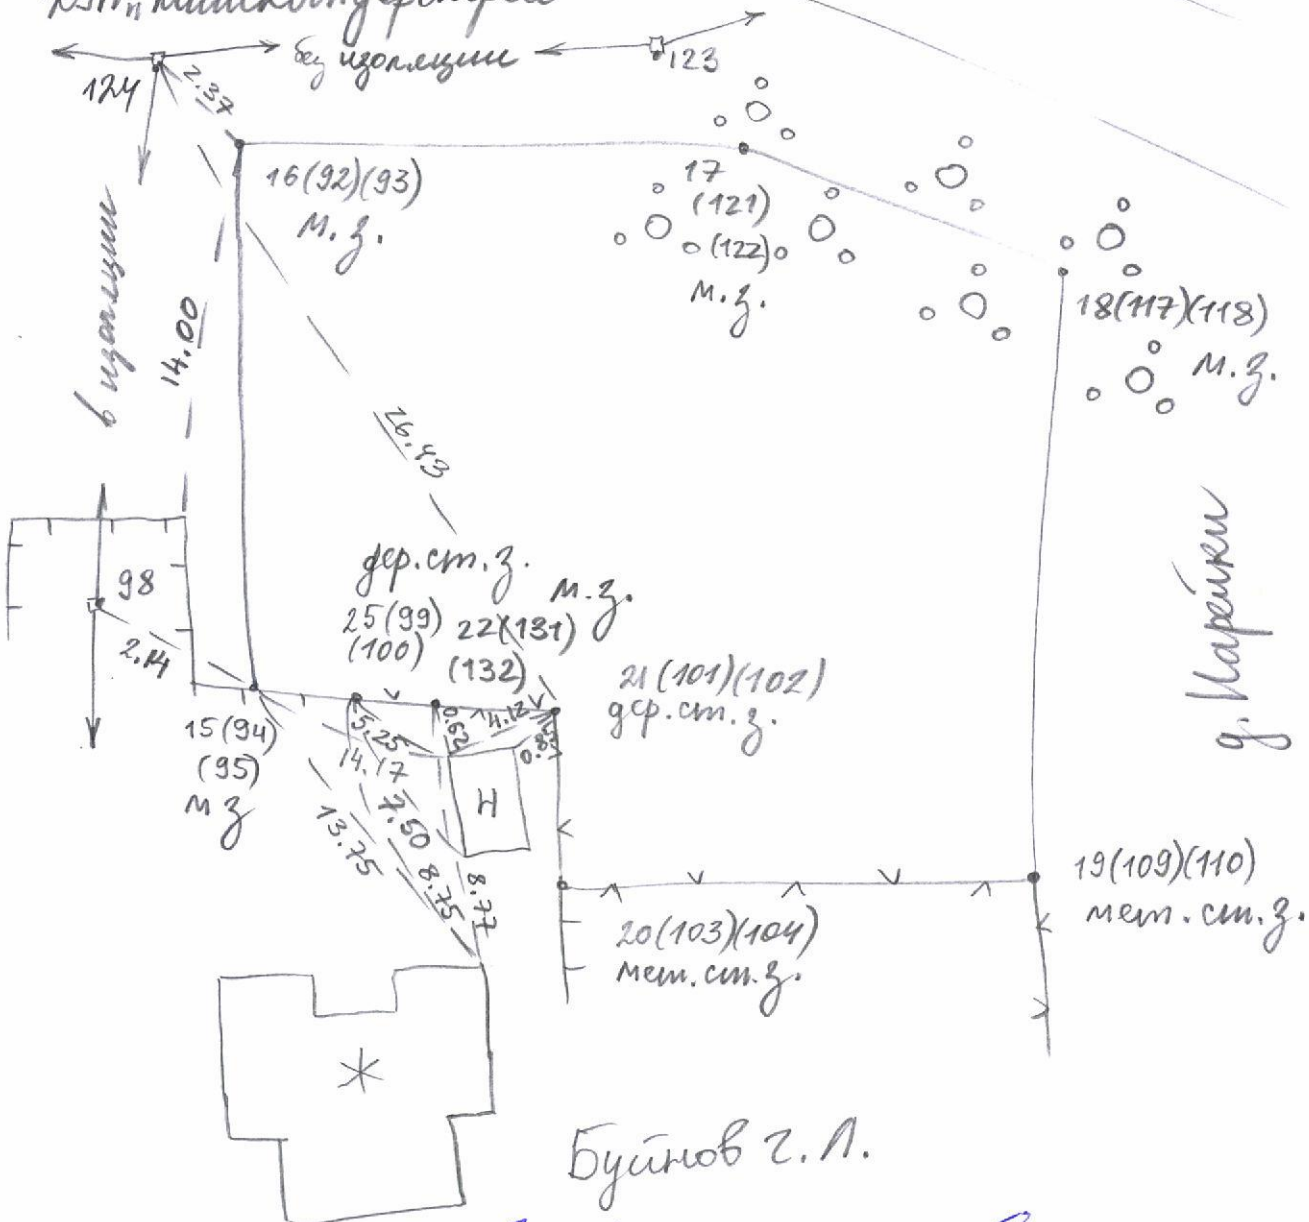 без изоляции
123
124
2.37
16(92)(93)
м.з.
17
(121)
(122)
м.з.
18(117)(118)
м.з.
в изоляции
14.00
26.43
98
2.14
дер.ст.з.
25(99)
(100)
м.з.
22(131)
(132)
21(101)(102)
дер.ст.з.
15(94)
(95)
м з
5.25
0.62
4.12
0.85
14.17
7.50
13.75
8.75
8.77
Н
д. Нарейки
19(109)(110)
мет.ст.з.
20(103)(104)
мет.ст.з.
Ж
Буйнов г.Л.